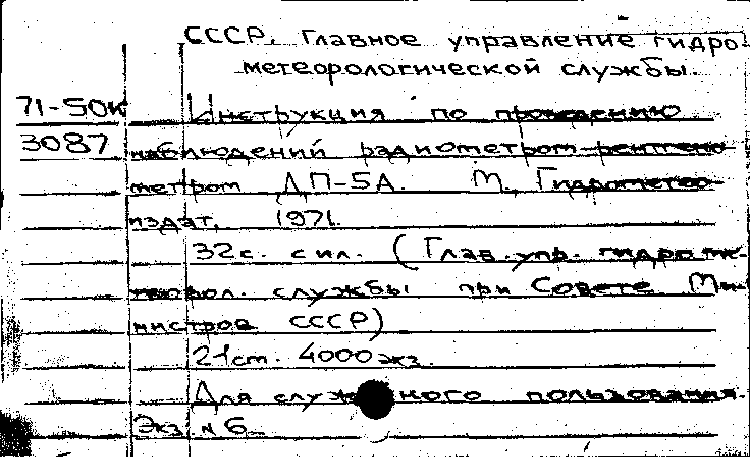 СССР. Главное управление гидро-
метеорологической службы.
71-50к Инструкция по проведению
3087 наблюдений радиометром-рентгено-
метром ДП-5А. М., Гидрометео-
издат, 1971.
32с. с ил. (Глав. упр. гидроме-
теорол. службы при Совете Ми-
нистров СССР)
21см. 4000экз.
Для служебного пользования.
Экз. № 6